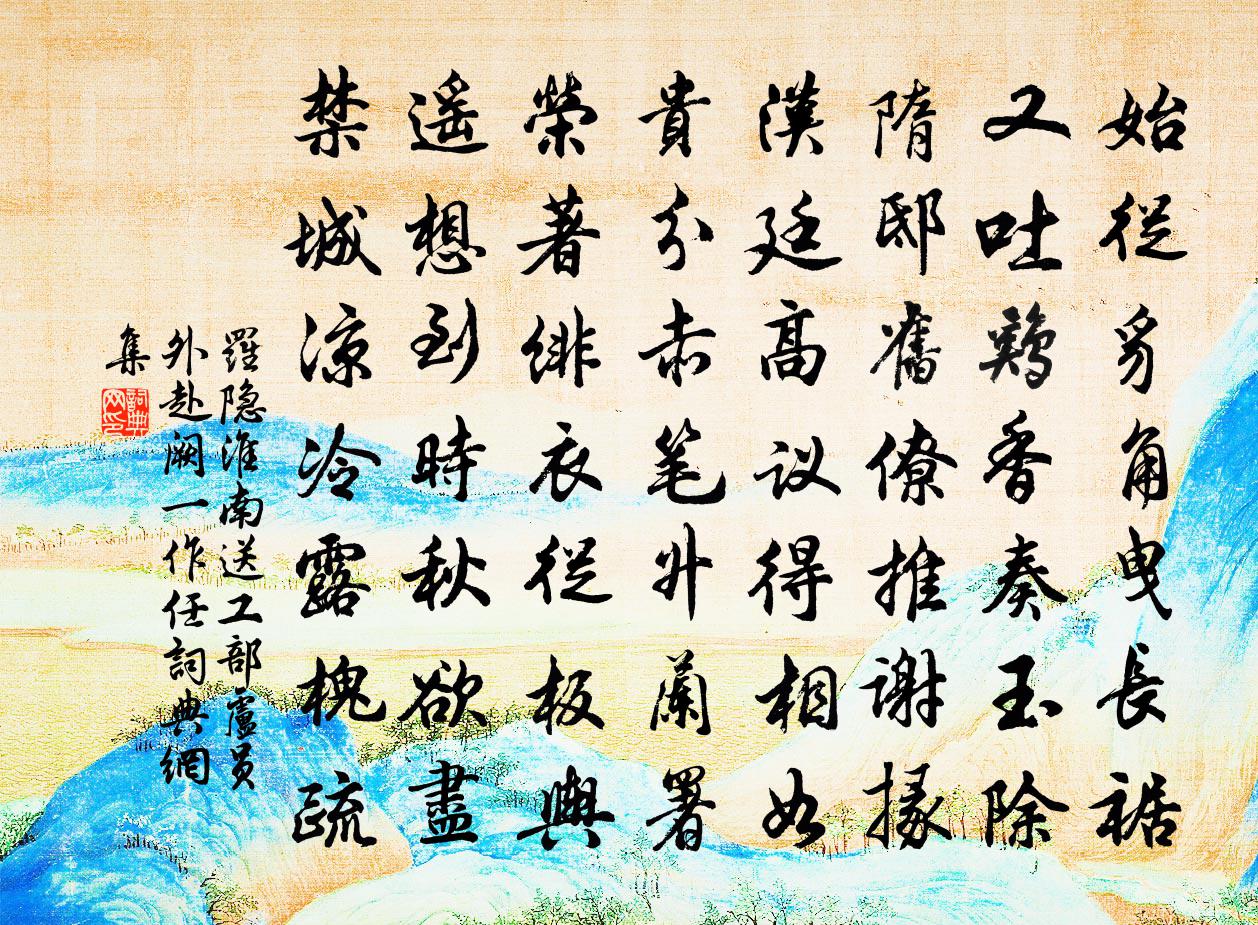 始從豸角曳長裾
又吐鷄香奏玉除
隋邸舊僚推謝掾
漢廷高议得相如
貴分赤笔升蘭署
榮著緋衣從板輿
遥想到時秋欲盡
禁城凉冷露槐疏
羅隐淮南送工部盧员
外赴阙一作任詞典網
集
詞典网印